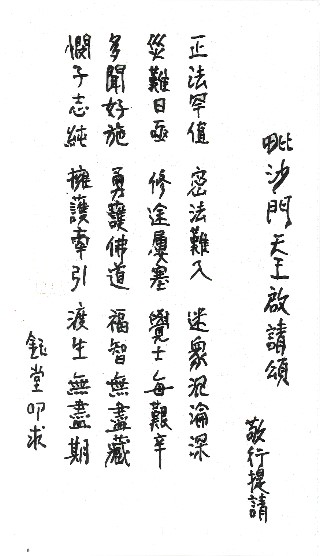 毗沙門天王啟請頌
敬行提請
正法罕值 密法難入 迷眾沉淪深
災難日亟 修途屢塞 覺士每艱辛
多聞好施 勇護佛道 福智無盡藏
憫子志純 擁護牽引 渡生無盡期
鈺堂叩求